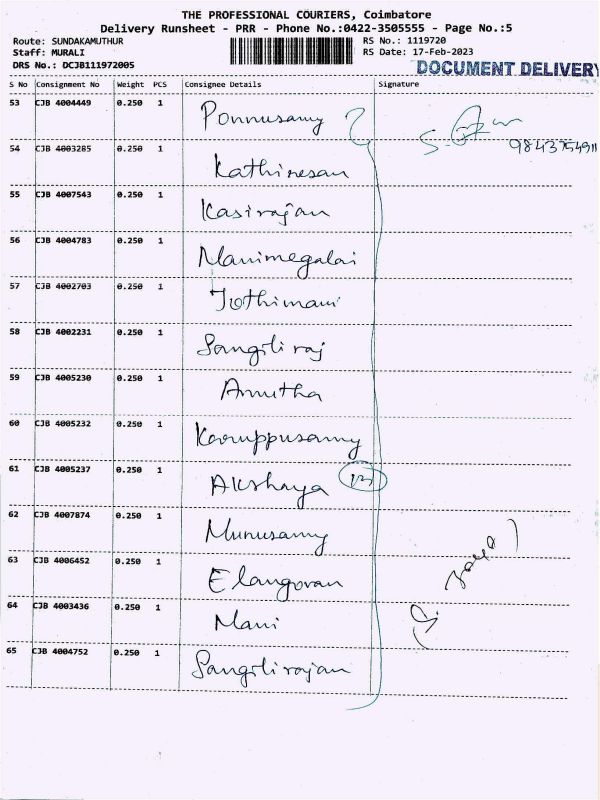 THE PROFESSIONAL COURIERS, Coimbatore
Delivery Runsheet - PRR - Phone No.:0422-3505555 - Page No.:5
Route: SUNDAKAMUTHUR RS No.: 1119720
Staff: MURALI RS Date: 17-Feb-2023
DRS No.: DCJB111972005 DOCUMENT DELIVERY
S No Consignment No Weight PCS Consignee Details Signature
53 CJB 4004449 0.250 1 Ponnusamy
9843754911
54 CJB 4003285 0.250 1 Kathiresan
55 CJB 4007543 0.250 1 Kasirajan
56 CJB 4004783 0.250 1 Manimegalai
57 CJB 4002703 0.250 1 Jothimani
58 CJB 4002231 0.250 1 Sangili raj
59 CJB 4005230 0.250 1 Amutha
60 CJB 4005232 0.250 1 Karuppusamy
61 CJB 4005237 0.250 1 Akshaya 13
62 CJB 4007874 0.250 1 Munusamy
63 CJB 4006452 0.250 1 Elangovan
64 CJB 4003436 0.250 1 Mani
65 CJB 4004752 0.250 1 Sangilirajan